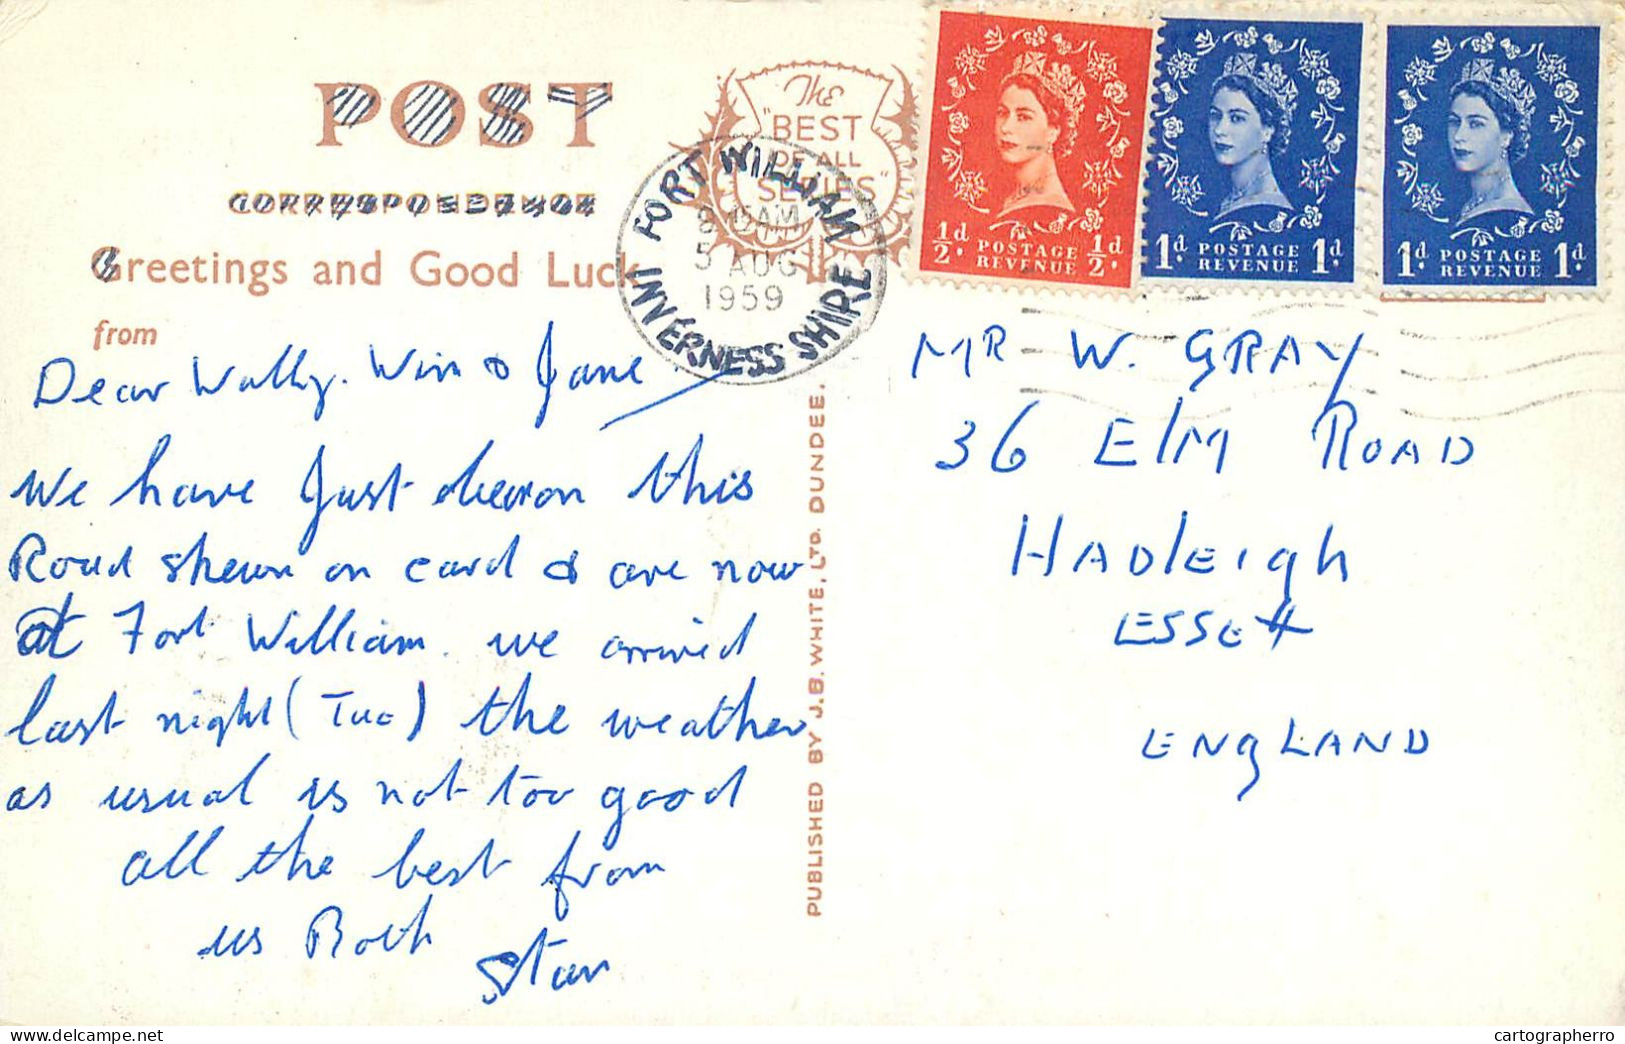 POST
CORRESPONDENCE
Greetings and Good Luck
from
The
"BEST
OF ALL
SERIES"
FORT WILLIAM
INVERNESS SHIRE
AM
5 AUG
1959
½d. POSTAGE REVENUE ½d.
1d. POSTAGE REVENUE 1d.
1d. POSTAGE REVENUE 1d.
Dear Wally. Win & Jane
We have Just driven this
Road shewn on card & are now
at Fort William. we arrived
last night (Tue) the weather
as usual is not too good
all the best from
us Both
Stan
PUBLISHED BY J.B. WHITE, LTD. DUNDEE.
MR W. GRAY
36 ElM ROAD
HADlEIgh
ESSEX
ENgLAND
delcampe.net
cartographerro